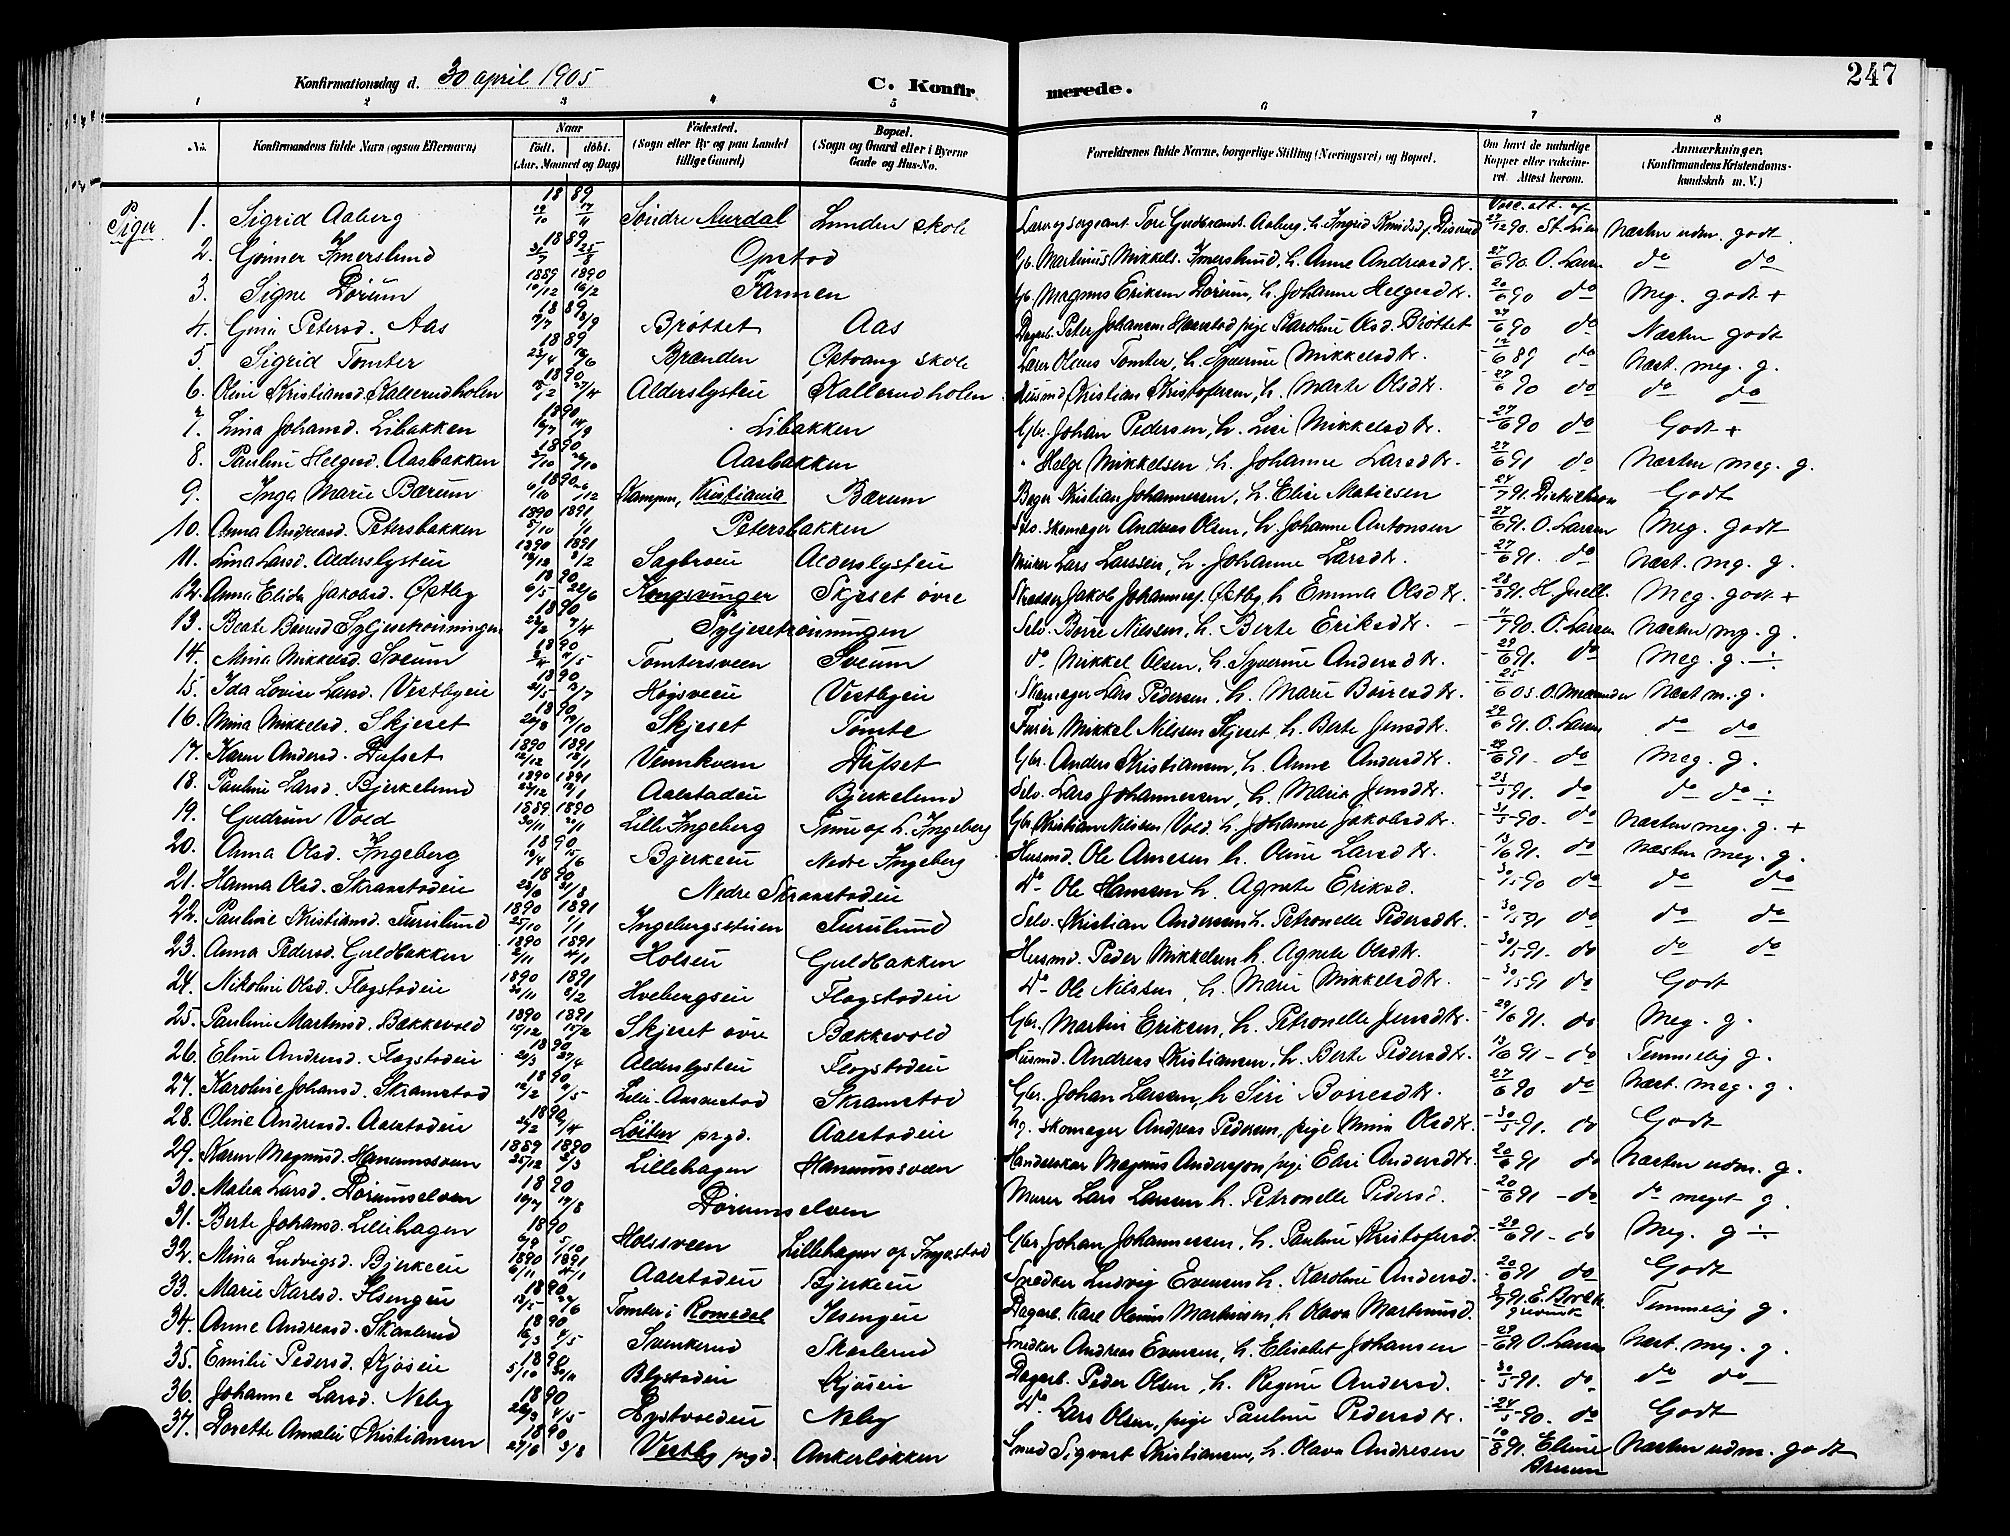 247
Konfirmationsdag d. 30 april 1905
C. Konfirmerede.
1 2 3 4 5 6 7 8
No. Konfirmandens fulde Navn (ogsaa Efternavn) Naar født. døbt. (Aar, Maaned og Dag) Fødested. (Sogn eller By og paa Landet tillige Gaard) Bopæl. (Sogn og Gaard eller i Byerne Gade og Hus-No. Forældrenes fulde Navne, borgerlige Stilling (Næringsvei) og Bopæl. Om havt de naturlige Kopper eller vaccineret. Attest herom. Anmærkninger. (Konfirmandens Kristendomskundskab m. V.)
Piger
1. Sigrid Aaberg 1889 Søndre Aurdal Lunden skole Næsten udm. godt
2. Gunner Imerslund 1889 Opstad Gb. Martinus Mikkels. Imerslund, h. Anne Andreasdtr. 27/6 90. O. Larsen do do
3. Signe Dørum 1889 1890 10/12 16/2 Farmen Gb. Magnus Eriksen Dørum, h. Johanne Helgesdtr. 20/6 90 do Meg. godt +
4. Gina Petersd. Aas 1889 Brøttet Aas 27/6 90 do Næsten godt
5. Sigrid Tomter 1889 23/4 Brænden Østvang skole Lærer Olaus Tomter, h. Syverine Mikkelsdtr. 12/6 89 do Næst. meg. g.
6. Oline Kristiansd. Kallerudholen 1890 Alderslysteie Kallerudholen Husmd Kristian Kristofersen, h. Marte Olsdtr. 27/6 90 do do do
7. Lina Johansd. Libakken 1890 Libakken Gbr. Johan Pedersen, h. Lisi Mikkelsdtr. 27/6 90 do Godt +
8. Pauline Helgesd. Aasbakken 1890 Aasbakken " Helge Mikkelsen h. Johanne Larsdtr. 27/6 91 do Næsten meg. g.
9. Inga Marie Bærum 1890 6/10 26/12 Kampen, Kristiania Bærum Bager Kristian Johannessen, h. Elise Matiesen 24/7 91. Godt
10. Anna Andreasd. Petersbakken 1890 1891 5/10 1/1 Petersbakken Selv. skomager Andreas Olsen, h. Johanne Antonsen 27/6 91. O. Larsen Meg. godt
11. Lina Larsd. Alderslysteie 1890 1891 Sagbroen Alderslysteie Murer Lars Larssen, h. Johanne Larsdtr. 27/6 91. do Næst. mg. g.
12. Anna Elida Jakobsd. Østby 1890 6/5 22/6 Kongsvinger Skjeset øvre Skrædder Jakob Johannes. Østby, h Emma Olsdtr. Meg. godt +
13. Beate Børresd Syljesetrøisningen 1890 23/2 7/4 Syljesetrøisningen Selv. Børre Nilssen, h. Berte Eriksdtr. 11/7 90. O. Larsen Næsten mg. g.
14. Mina Mikkelsd. Sveum 1890 Tomtersveen Sveum do Mikkel Olsen, h. Syverine Andersdtr. 29/6 91. do Meg. g. ÷
15. Ida Lovise Larsd. Vestbyeie 1890 Høgsveen Vestbyeie Skomager Lars Pedersen, h. Marie Børresdtr. 25/6 05. Næst m. g.
16. Mina Mikkelsd. Skjeset 1890 Skjeset Tømte Mikkel Nilssen Skjeset, h. Berte Jensdtr. 29/6 91. O. Larsen do do
17. Karen Andersd. Dufset 1890 1891 12/12 Vennkveen Dufset Gbr. Anders Kristiansen, h. Anne Andersdtr. 29/6 91. do Meg. g.
18. Pauline Larsd. Bjerkelund 1890 1891 Aalstadeie Bjerkelund Selv. Lars Johannessen, h. Maria Jensdtr. 23/5 91. do do do ÷
19. Gudrun Vold 1889 1890 30/11 Lille Ingeberg Tune af L. Ingeberg Gbr. Kristian Nilssen Vold. h. Johanne Jakobsdtr. 31/5 90. do Næsten meg. g. +
20. Anna Olsd. Ingeberg 1890 Bjerkeeie Nedre Ingeberg Husmd. Ole Arnesen h. Oline Larsdtr. 13/6 91. do Næsten meg. g.
21. Hanna Olsd. Skramstadeie 1890 Nedre Skramstadeie Do Ole Hanssen h. Agnete Eriksd. 30/5 90 do do do
22. Pauline Kristiansd. Furulund 1890 1891 25/10 1/1 Ingebergsstuen Furulund Selv. Kristian Anderssen h. Petronelle Pedersdtr. 30/5 91 do do do
23. Anna Pedersd. Guldbakken 1890 1891 Holseie Guldbakken Husmd. Peder Mikkelsen h. Agnete Olsdtr. 30/5 91. do do do
24. Nikoline Olsd. Flagstadeie 1890 1891 Hvebergseie Flagstadeie Do Ole Nilssen, h. Marie Mikkelsdtr. 30/5 91 do Godt
25. Pauline Martinsd. Bækkevold 1890 1891 Skjeset øvre Bakkevold Gbr. Martin Eriksen, h. Petronelle Jensdtr. 29/6 91. do Meg. g.
26. Eline Andreasd. Flagstadeie 1890 Alderslysteie Flagstadeie Husmd. Andreas Kristiansen, h. Berte Pedersdtr. 13/6 91 do Temmelig g.
27. Karoline Johansd. Skramstad 1890 Lille-Aarnestad Skramstad Gbr. Johan Larssen, h Siri Børresdtr. 27/6 90 do Næst. meg. g.
28. Oline Andreasd. Aalstadeie 1890 Løiten prgd. Aalstadeie skomager Andreas Pedersen, pige Mina Olsdtr. 30/5 91. do Godt
29. Karen Magnusd. Hanumssveen 1889 1890 25/12 2/3 Lillehagen Hanumssveen Magnus Andersson, pige Elsi Andersdtr. 20/6 91 do Næsten udm. g.
30. Matea Larsd. Dørumselven 1890 Dørumselven Murer Lars Larssen h. Petronelle Pedersd. 20/6 91 do do meget g.
31. Berte Johansd. Lillehagen 1890 Holssveen Lillehagen af Ingestad Gbr Johan Johannessen, h. Pauline Kristofersd. 20/6 91 do Meg. g ÷
32. Mina Ludvigsd. Bjerkeeie 1890 1891 6/11 Aalstadeie Bjerkeeie Snedker Ludvig Evensen h. Karoline Andersd. 20/6 91 do Godt
33. Marie Karlsd. Ilsengeie 1890 Tomter i Romedal Ilsengeie Dagarb. Karl Olinus Martinsen, h Olava Martinusd. Temmelig g.
34. Anne Andreasd. Skaslerud 1890 Svenkerud Skaslerud Snedker Andreas Evensen, h. Elisabet Johansen 29/6 91 O. Larsen Næst. meg. g.
35. Emilie Pedersd. Kjøseie 1890 5/10 Blystadeie Kjøseie Dagarb. Peder Olsen, h. Regine Andersd. 30/5 91. do do do
36. Johanne Larsd. Neby 1890 4/5 Neby Do. Lars Olsen, pige Pauline Pedersdtr. 24/5 90. do Godt
37. Dorette Amalie Kristiansen 1890 27/6 3/8 Vestby prgd. Ankerløkken Smed Sigvart Kristiansen, h. Olava Andresen 10/8 91. Næsten udm. godt